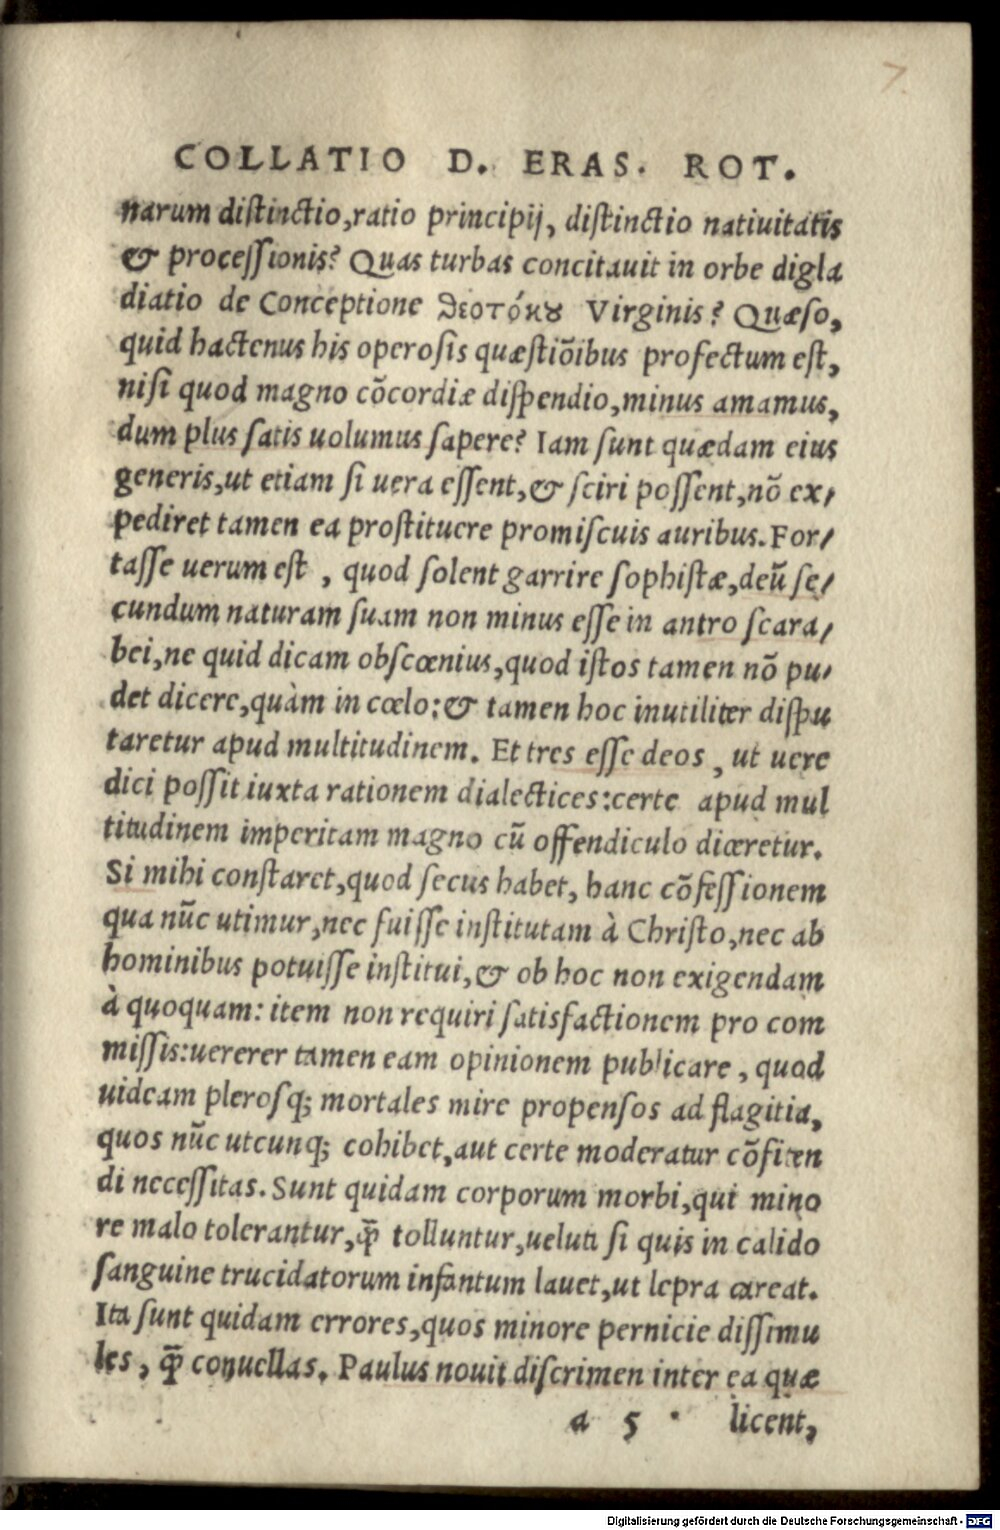 7.
COLLATIO D. ERAS. ROT.
narum distinctio,ratio principij, distinctio natiuitatis
& processionis? Quas turbas concitauit in orbe digla
diatio de Conceptione θεοτόκȣ Virginis? Quæso,
quid hactenus his operosis quæstiõibus profectum est,
nisi quod magno cõcordiæ dispendio,minus amamus,
dum plus satis uolumus sapere? Iam sunt quædam eius
generis,ut etiam si uera essent,& sciri possent,nõ ex/
pediret tamen ea prostituere promiscuis auribus. For/
tasse uerum est , quod solent garrire sophistæ,deũ se/
cundum naturam suam non minus esse in antro scara/
bei,ne quid dicam obscœnius,quod istos tamen nõ pu/
det dicere,quàm in cœlo:& tamen hoc inutiliter dispu
taretur apud multitudinem. Et tres esse deos , ut uere
dici possit iuxta rationem dialectices:certe apud mul
titudinem imperitam magno cũ offendiculo diceretur.
Si mihi constaret,quod secus habet, hanc cõfessionem
qua nũc utimur,nec fuisse institutam à Christo,nec ab
hominibus potuisse institui,& ob hoc non exigendam
à quoquam: item non requiri satisfactionem pro com
missis:uererer tamen eam opinionem publicare , quod
uideam plerosq; mortales mire propensos ad flagitia,
quos nũc utcunq; cohibet,aut certe moderatur cõfiten
di necessitas. Sunt quidam corporum morbi,qui mino
re malo tolerantur,q̃ tolluntur,ueluti si quis in calido
sanguine trucidatorum infantum lauet,ut lepra careat.
Ita sunt quidam errores,quos minore pernicie dissimu
les , q̃ conuellas. Paulus nouit discrimen inter ea quæ
a 5 licent,
Digitalisierung gefördert durch die Deutsche Forschungsgemeinschaft - DFG